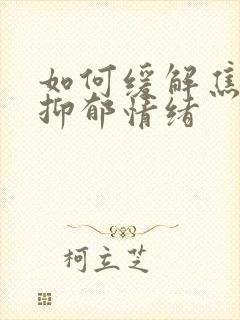 如何缓解焦
抑郁情绪
柯立芝